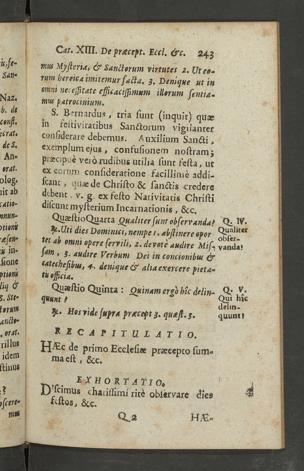 Cat. XIII. De præcept. Eccl. &c. 243
mus Mysteria, & Sanctorum virtutes 2. Ut eo-
rum heroica imitemur facta. 3. Denique ut in
omni necessitate efficacissimum illorum sentia-
mus patrocinium.
S. Bernardus, tria sunt (inquit) quæ
in festivitatibus Sanctorum vigilanter
considerare debemus. Auxilium Sancti,
exemplum ejus, confusionem nostram;
præcipuè verò rudibus utilia sunt festa, ut
ex eorum consideratione facillimè addi-
scant, quæ de Christo & sanctis credere
debent. v. g ex festo Nativitatis Christi
discunt mysterium Incarnationis, &c.
Quæstio Quarta Qualiter sunt observanda?
℞. Uti dies Dominici, nempe 1. abstinere opor-
tet ab omni opere servili, 2. devotè audire Mis-
sam, 3. audire Verbum Dei in concionibus &
catechesibus, 4. denique & alia exercere pieta-
tis officia.
Quæstio Quinta: Quinam ergò hîc delin-
quunt?
℞. Hos vide supra præcept 3. quæst. 3.
RECAPITULATIO.
HÆc de primo Ecclesiæ præcepto sum-
ma est, &c.
EXHORTATIO.
Discimus charissimi ritè observare dies
festos, &c.
Q 2 HÆ-
Q. IV.
Qualiter
obser-
vanda?
Q. V.
Qui hîc
delin-
quunt?